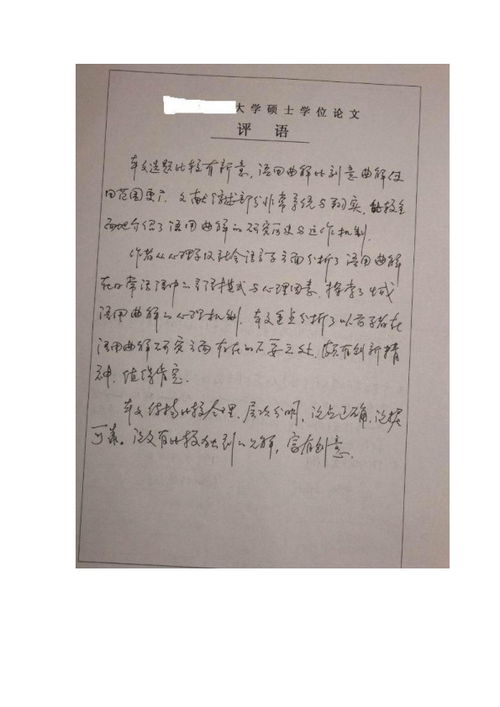 大学硕士学位论文
评 语
本文选题比较有新意，语用曲解比刻意曲解使
用范围更广。文献综述部分非常系统与翔实，比较全
面地介绍了语用曲解的研究历史与运作机制。
作者从心理学及社会语言学方面分析了语用曲解
在日常法语中的引语模式与心理因素，探索了生成
语用曲解的心理机制。本文重点分析了以前学者在
语用曲解研究方面存在的不妥之处，颇有创新精
神，值得肯定。
本文结构比较合理，层次分明，论点正确，论据
可靠。论文有比较独到的见解，富有创意。